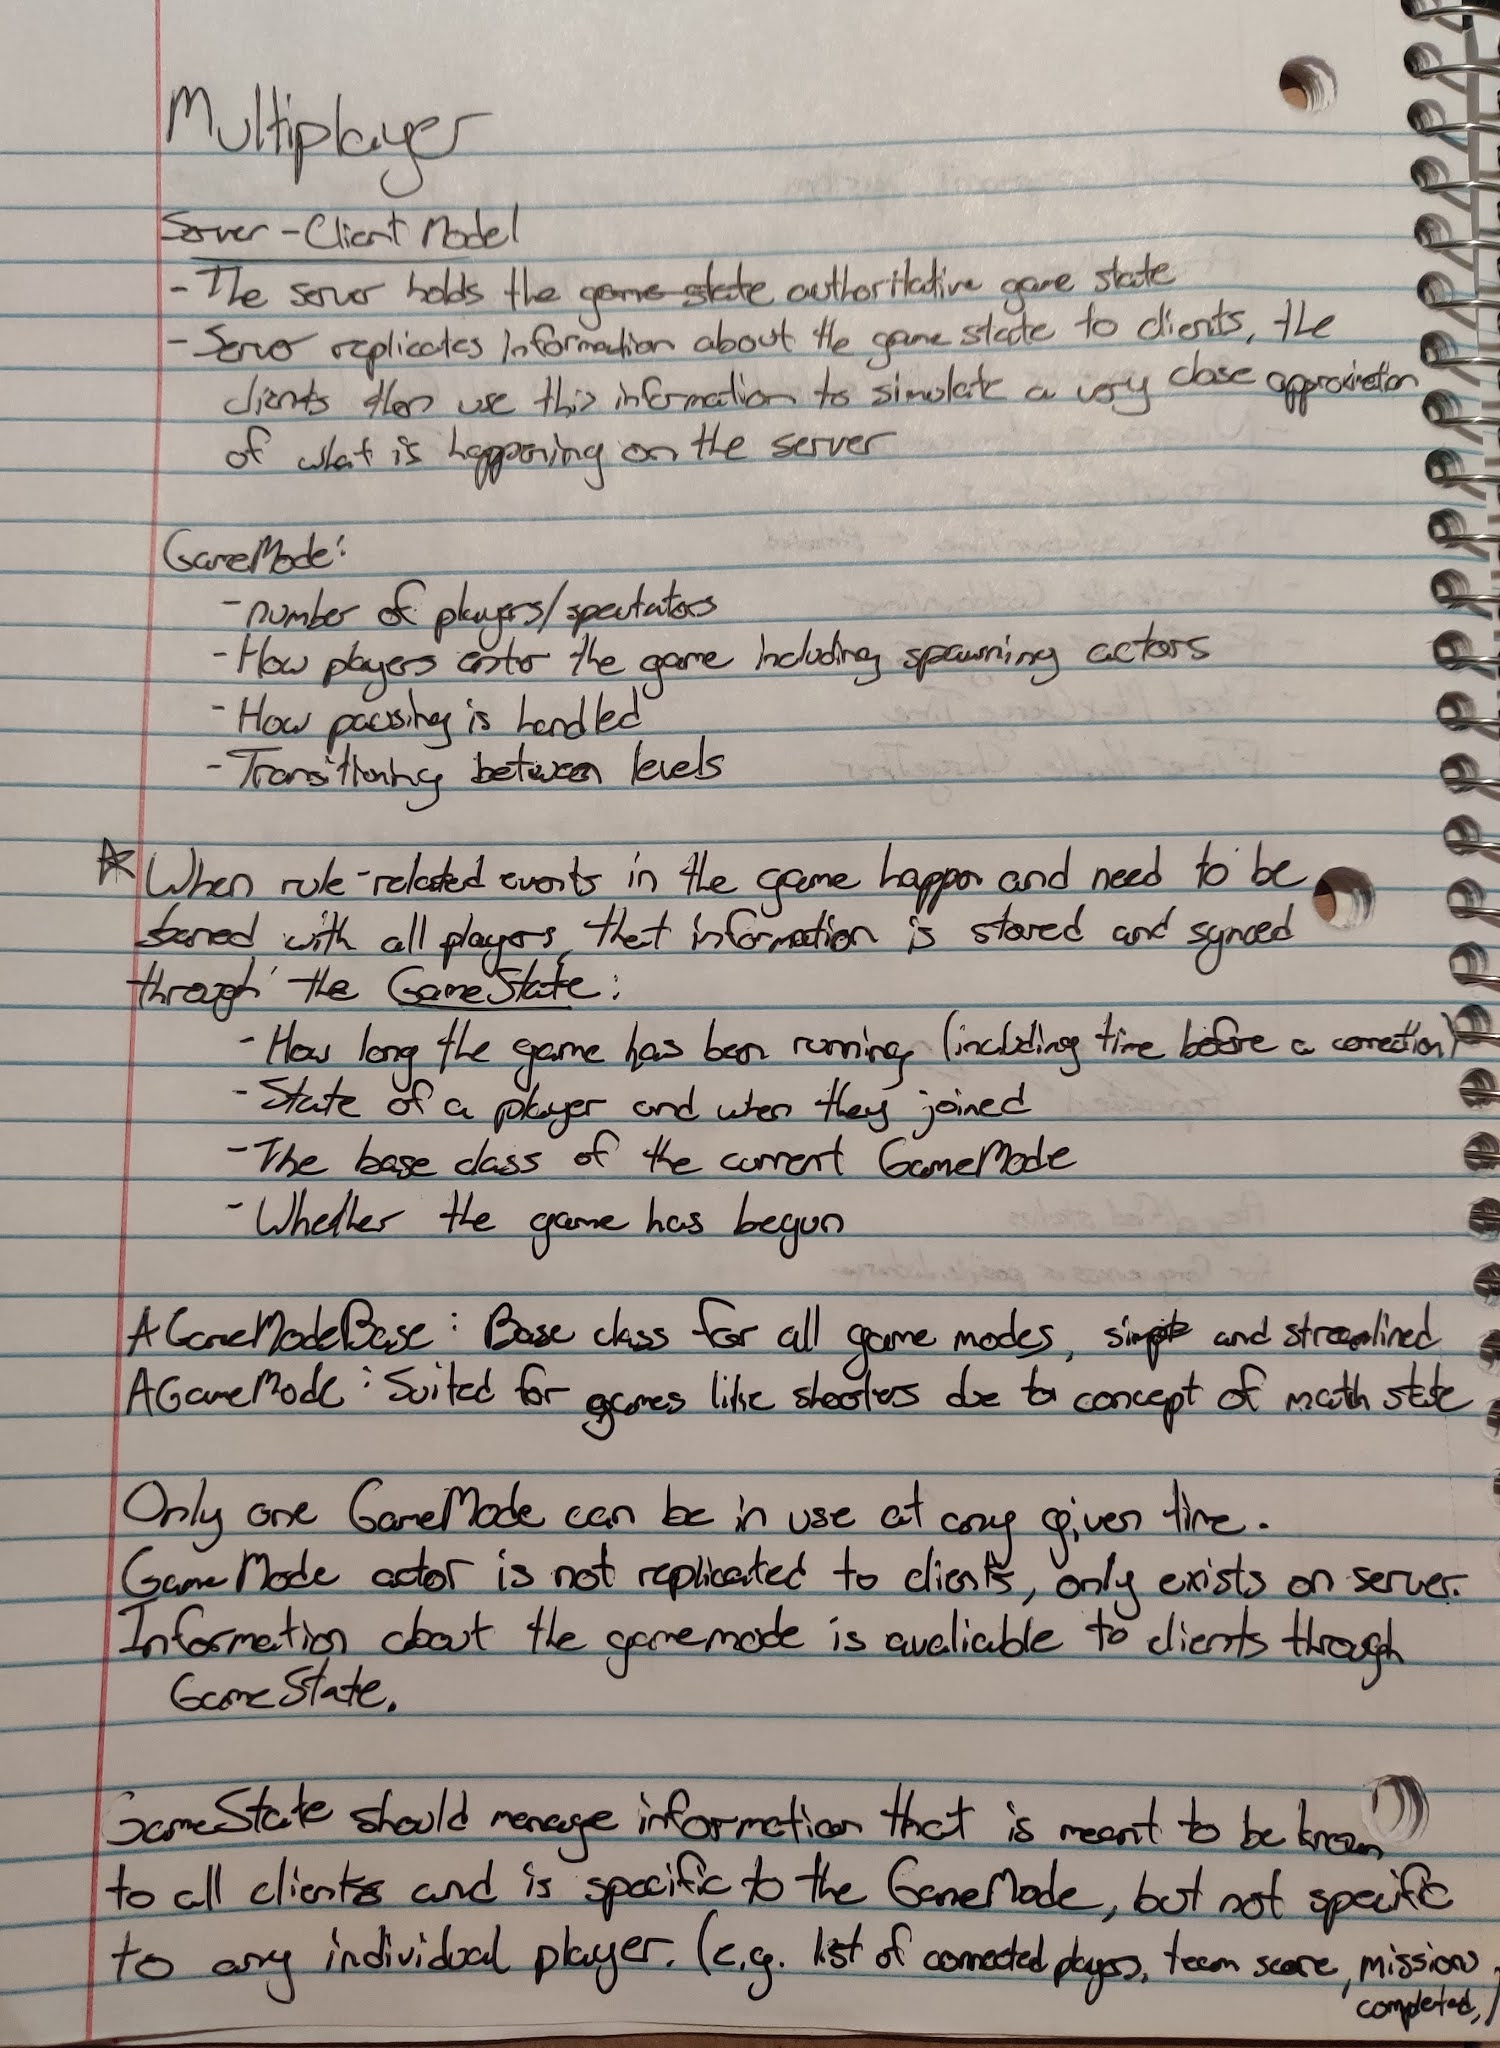 Multiplayer
Server-Client Model
- The server holds the game state authoritative game state
- Server replicates information about the game state to clients, the
clients then use this information to simulate a very close approximation
of what is happening on the server
GameMode:
- number of players/spectators
- How players enter the game including spawning actors
- How pausing is handled
- Transitioning between levels
☆ When rule-related events in the game happen and need to be
shared with all players, that information is stored and synced
through the GameState:
- How long the game has been running (including time before a connection)
- State of a player and when they joined
- The base class of the current GameMode
- Whether the game has begun
AGameModeBase: Base class for all game modes, simple and streamlined
AGameMode: Suited for games like shooters due to concept of match state
Only one GameMode can be in use at any given time.
GameMode actor is not replicated to clients, only exists on server.
Information about the gamemode is avaliable to clients through
GameState.
GameState should manage information that is meant to be known
to all clients and is specific to the GameMode, but not specific
to any individual player. (e.g. list of connected players, team score, missions
completed,)